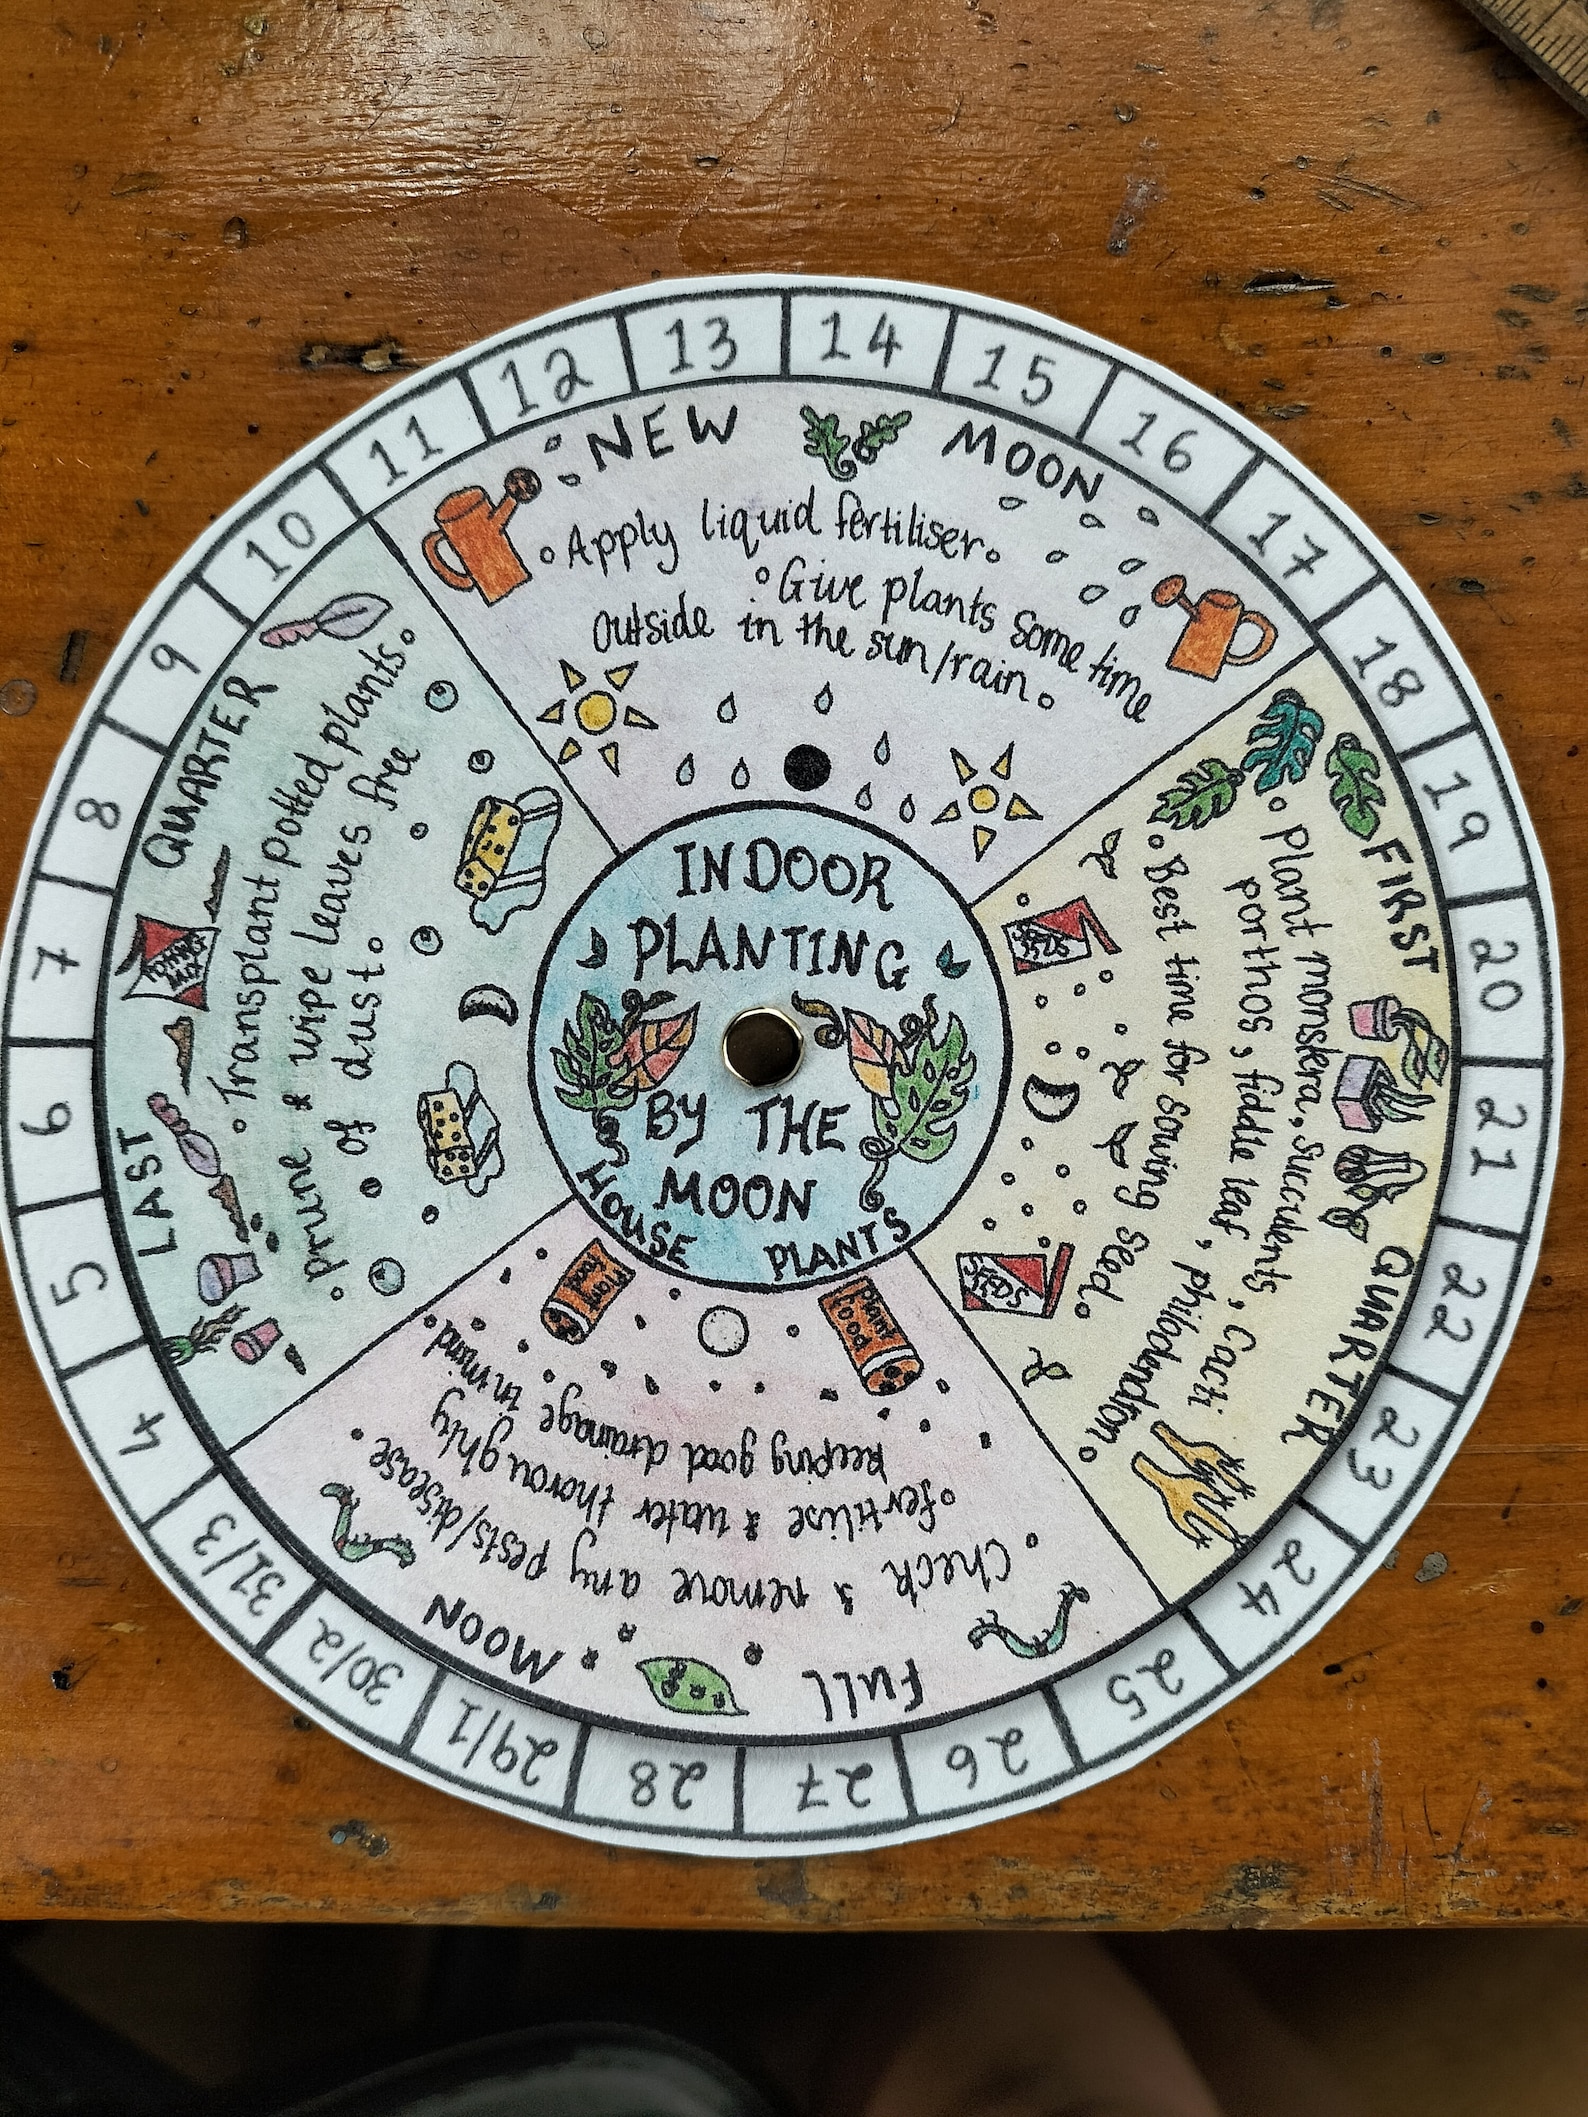 INDOOR
PLANTING
BY THE
MOON
HOUSE PLANTS
NEW MOON
Apply liquid fertiliser.
Give plants some time
outside in the sun/rain.
FIRST QUARTER
Plant monstera, succulents, cacti
porthos, fiddle leaf, philodendron.
Best time for sowing seed.
SEEDS
SEEDS
FULL MOON
Check & remove any pests/disease.
fertilise & water thoroughly
keeping good drainage in mind.
Plant
food
Plant
food
LAST QUARTER
Transplant potted plants.
prune & wipe leaves free
of dust.
4
5
6
7
8
9
10
11
12
13
14
15
16
17
18
19
20
21
22
23
24
25
26
27
28
29/1
30/2
31/3